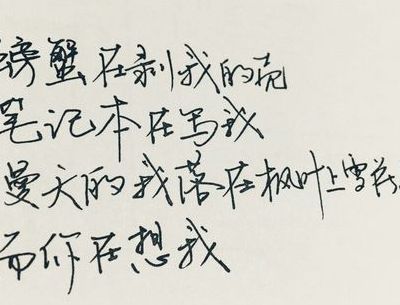 螃蟹在剥我的壳
笔记本在写我
漫天的我落在枫叶上雪花
而你在想我